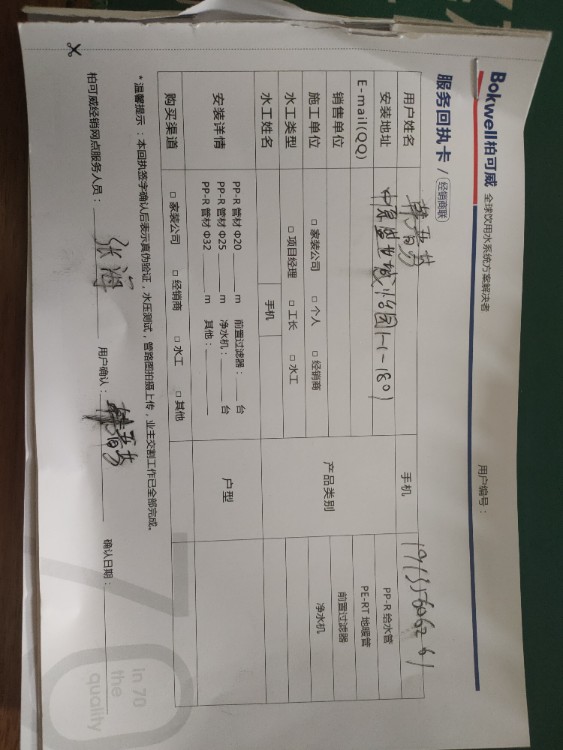 Bokwell柏可威 全球饮用水系统方案解决者
服务回执卡 / 经销商联 用户编号：
用户姓名 手机
安装地址 1-1-1801 PP-R 给水管
E-mail(QQ) PE-RT 地暖管
销售单位 产品类别 前置过滤器
施工单位 □ 家装公司 □ 个人 □ 经销商 净水机
水工类型 □ 项目经理 □ 工长 □ 水工
水工姓名 手机
安装详情 PP-R 管材 Φ20 m 前置过滤器： 台 户型
PP-R 管材 Φ25 m 净水机： 台
PP-R 管材 Φ32 m 其他：
购买渠道 □ 家装公司 □ 经销商 □ 水工 □ 其他
*温馨提示：本回执签字确认后表示真伪验证，水压测试，管路图拍摄上传，业主交割工作已全部完成。
柏可威经销网点服务人员： 张海 用户确认： 确认日期：
In 70
the
quality